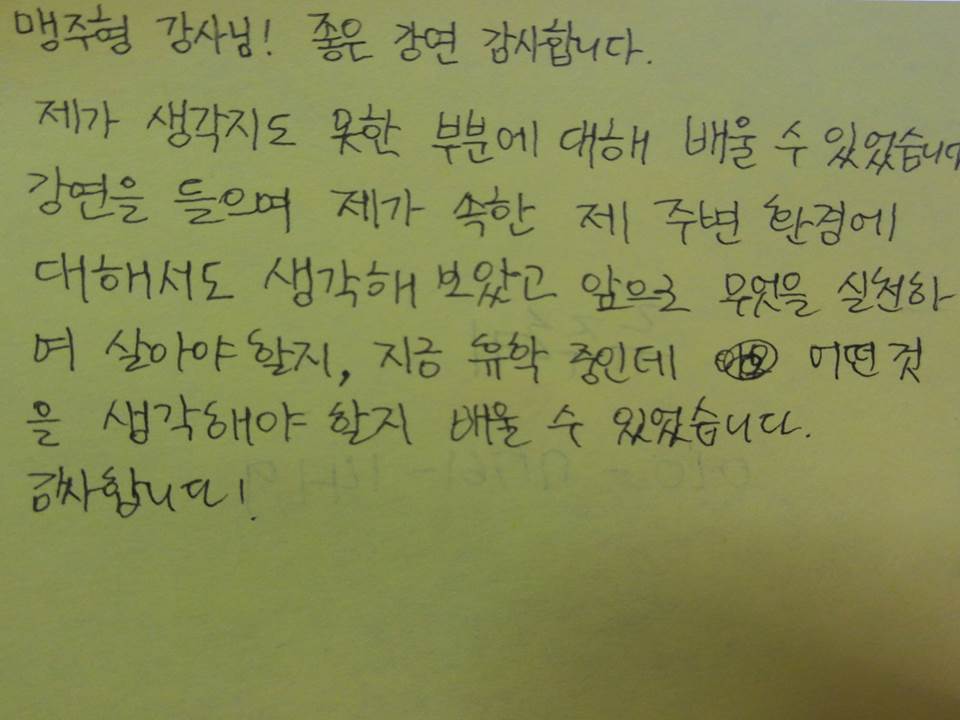 맹주형 강사님! 좋은 강연 감사합니다.
제가 생각지도 못한 부분에 대해 배울 수 있었습니다
강연을 들으며 제가 속한 제 주변 환경에
대해서도 생각해 보았고 앞으로 무엇을 실천하
여 살아야 할지, 지금 유학 중인데 어떤 것
을 생각해야 할지 배울 수 있었습니다.
감사합니다!